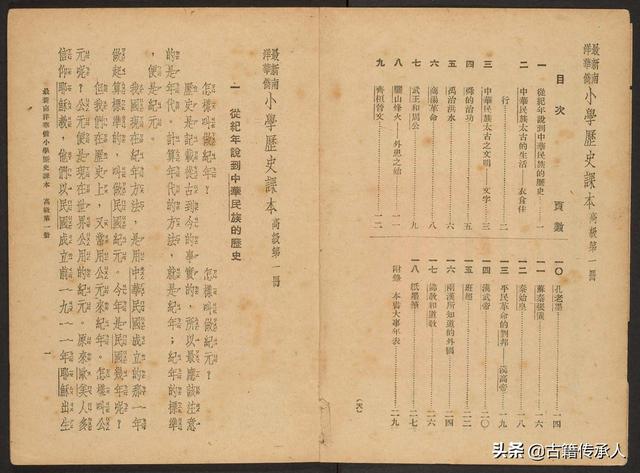 最新南洋華僑 小學歷史課本 高級第一冊
目次 頁數
一 從紀年說到中華民族的歷史……一
二 中華民族太古的生活——衣食住
行……二
三 中華民族太古之文明——文字……三
四 舜的治功……五
五 禹治洪水……六
六 商湯革命……八
七 武王和周公……九
八 驪山烽火——外患之始……一一
九 齊桓晉文……一二
一〇 孔老墨……一四
一一 蘇秦張儀……一六
一二 秦始皇……一八
一三 平民革命的劉邦——漢高帝……一九
一四 漢武帝……二〇
一五 班超……二二
一六 兩漢所知道的外國……二四
一七 佛教和道教……二六
一八 紙墨筆……二七
附錄 本書大事年表……二九
最新南洋華僑 小學歷史課本 高級第一冊
一 從紀年說到中華民族的歷史
怎樣叫做紀年? 怎樣叫做紀元?
歷史是記載從古到今的事實的,所以最應該注意
的是年代。計算年代的方法,就是紀年;紀年的標準
,便是紀元。
我國現在紀年方法,是用中華民國成立的那一年
做起算標準的,叫做民國紀元。今年是民國幾年呢?
但我們在歷史上,又常用公元來紀年。怎樣叫公
元呢?公元便是現在世界公用的紀元。原來歐美人多
信仰耶穌教,他們以民國成立前一九一一年耶穌出生
最新南洋華僑小學歷史課本 高級第一冊 一
头条 @古籍传承人